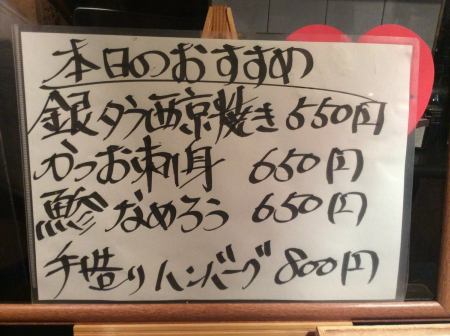 本日のおすすめ
銀ダラ西京焼き 550円
かつお刺身 650円
鯵なめろう 650円
手造りハンバーグ 800円